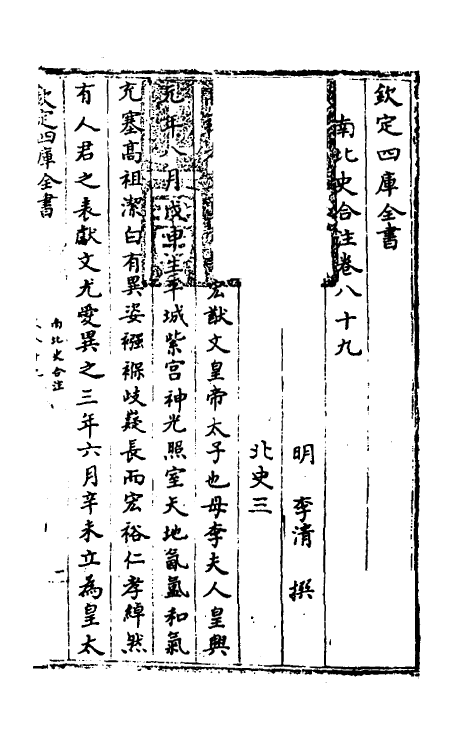 欽定四庫全書
南北史合注卷八十九
明 李清 撰
北史三
宏獻文皇帝太子也母李夫人皇興
元年八月戊申生平城紫宮神光照室天地氤氲和氣
充塞高祖潔白有異姿襁褓岐嶷長而宏裕仁孝綽然
有人君之表獻文尤愛異之三年六月辛未立為皇太
欽定四庫全書
南北史合注
一